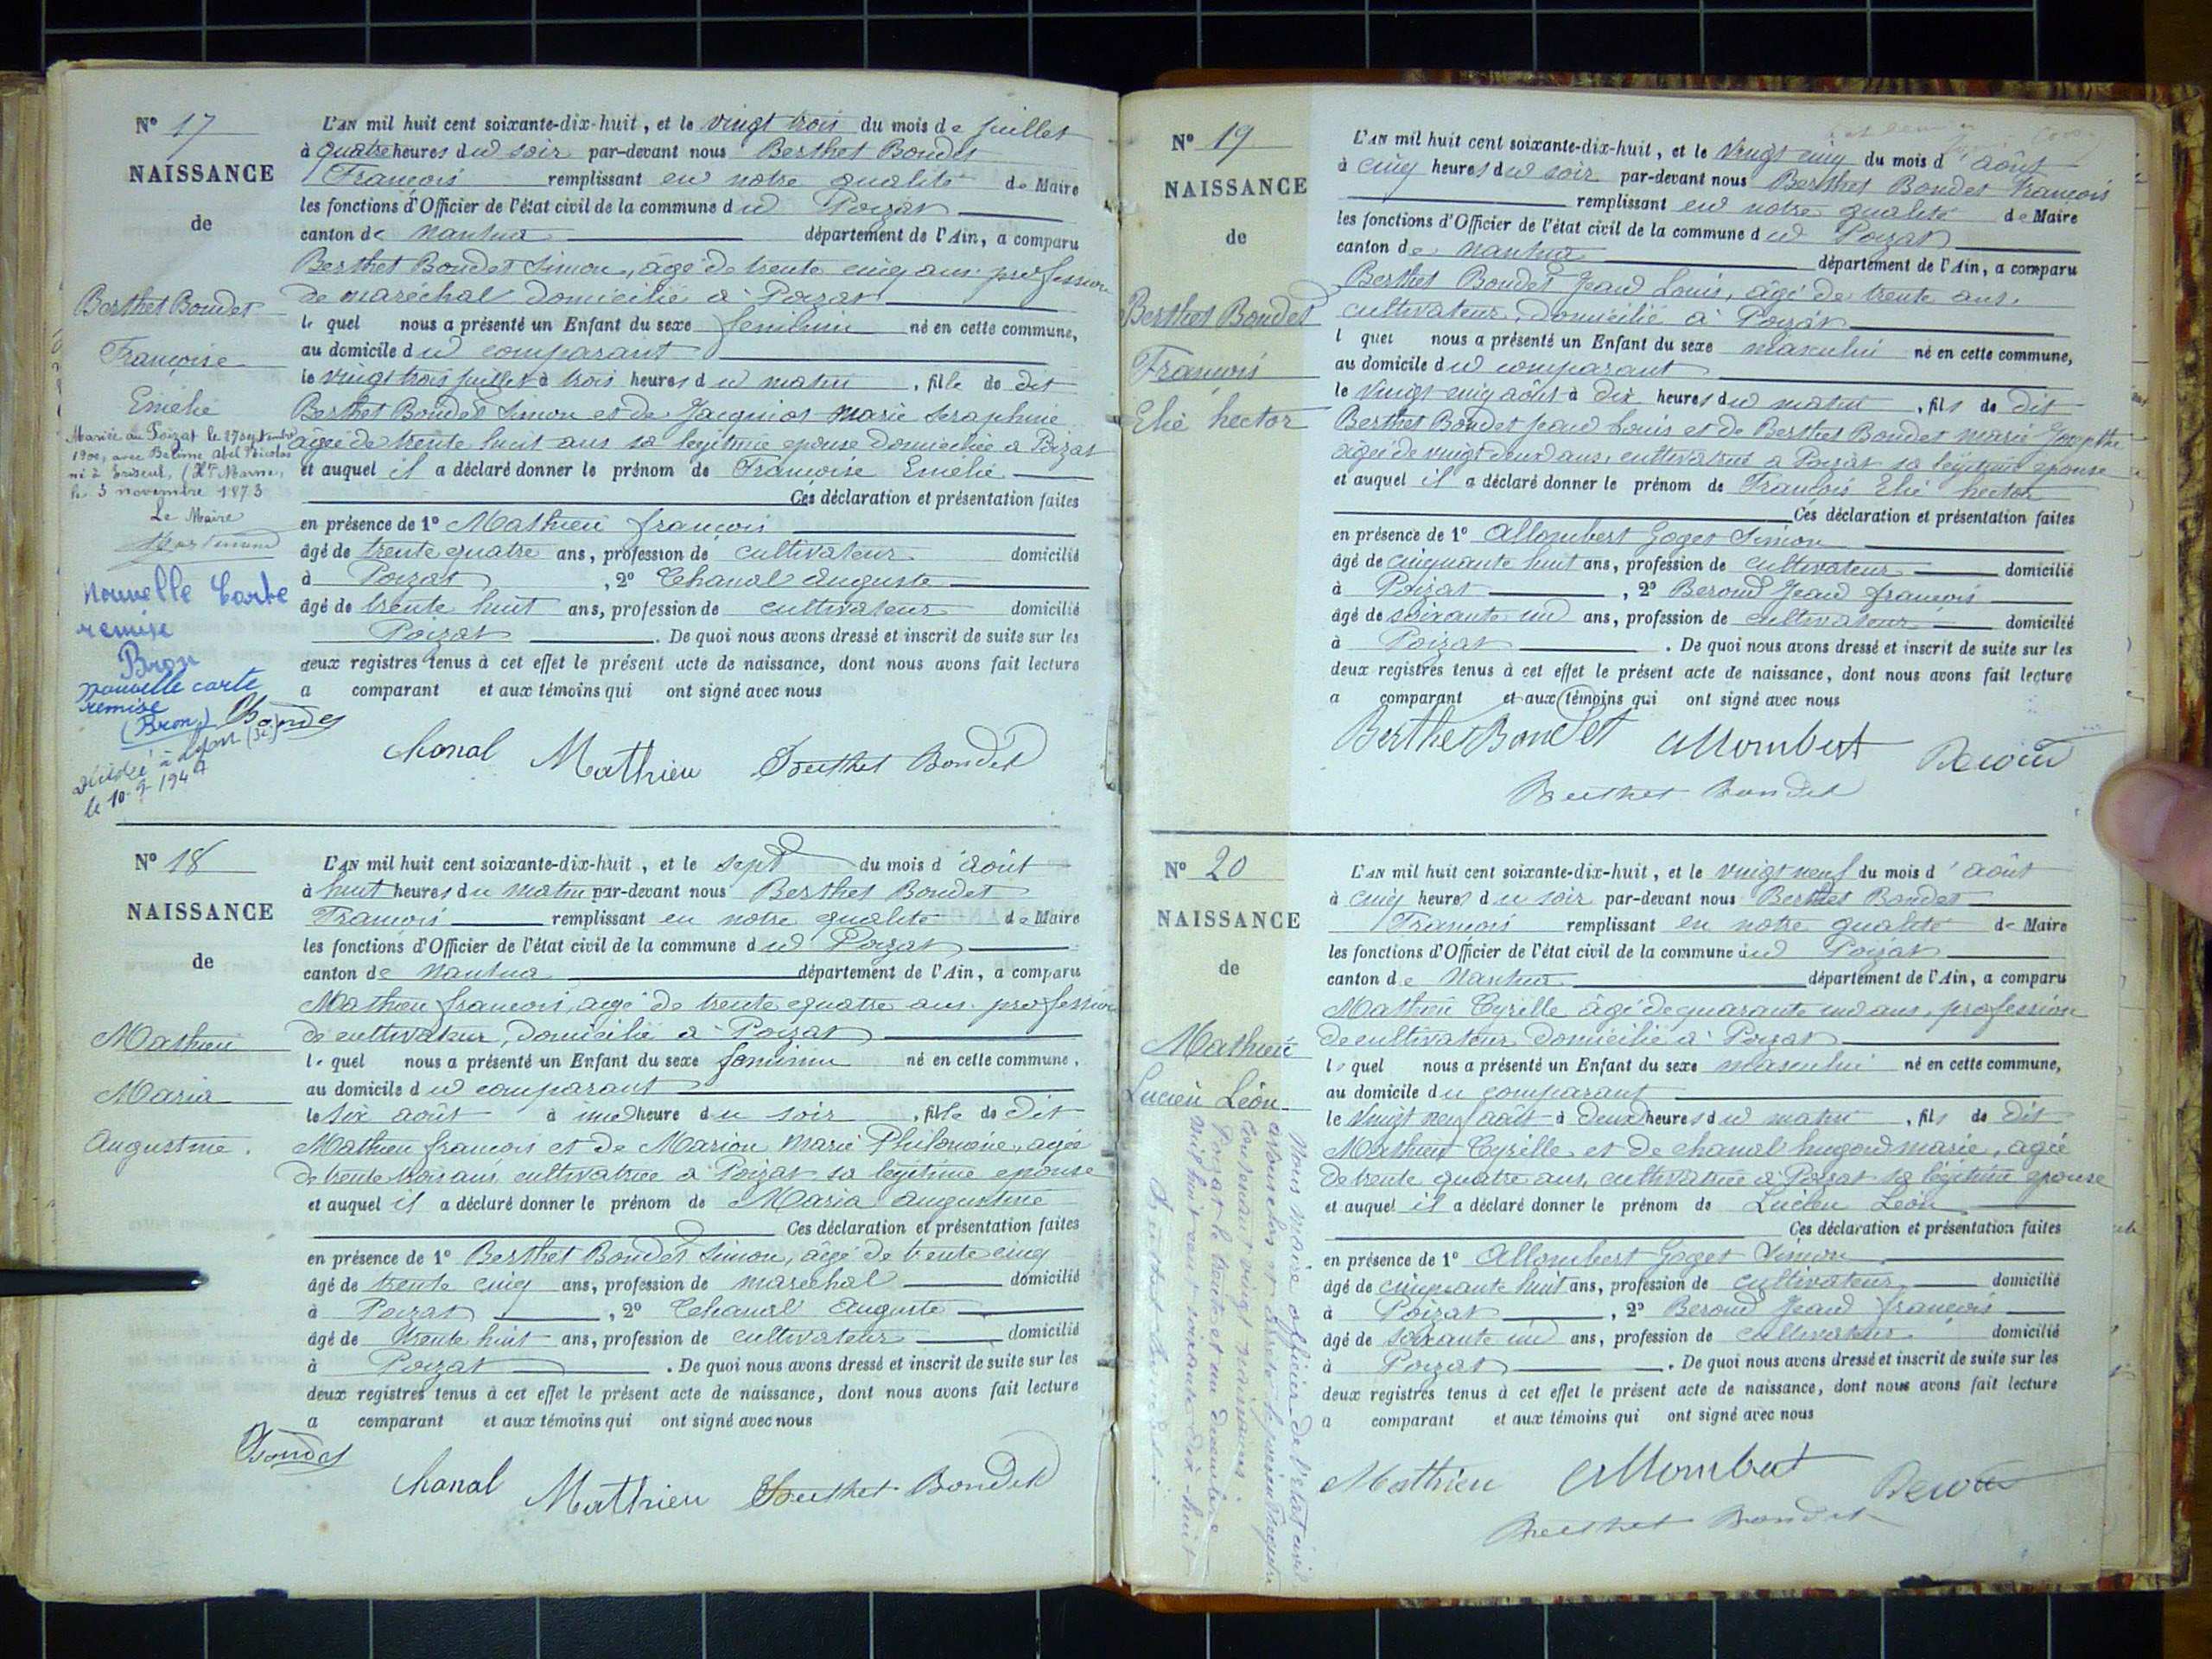 N° 17
NAISSANCE
de
Berthet Bondet
Françoise
Emélie
Mariée au Poizat le 27 septembre
1900, avec Abel Nicolas
né à (Hte Marne)
le 3 novembre 1873
Le Maire
Nouvelle Carte
remise
Bron
nouvelle carte
remise
(Bron)
Décédée à Lyon (3e)
le 10-9-194
L'AN mil huit cent soixante-dix-huit, et le vingt trois du mois de juillet
à quatre heures du soir par-devant nous Berthet Bondet
François remplissant en notre qualité de Maire
les fonctions d'Officier de l'état civil de la commune du Poizat
canton de Nantua département de l'Ain, a comparu
Berthet Bondet Simon, âgé de trente cinq ans profession
de maréchal domicilié à Poizat
le quel nous a présenté un Enfant du sexe feminin né en cette commune,
au domicile du comparant
le vingt trois juillet à trois heures du matin, fille de dit
Berthet Bondet Simon et de Jacquiot Marie Seraphine
âgée de trente huit ans sa legitime epouse domiciliée a Poizat
et auquel il a déclaré donner le prénom de Françoise Emélie
Ces déclaration et présentation faites
en présence de 1° Mathieu françois
âgé de trente quatre ans, profession de cultivateur domicilié
à Poizat, 2° Chanal Auguste
âgé de trente huit ans, profession de cultivateur domicilié
Poizat. De quoi nous avons dressé et inscrit de suite sur les
deux registres tenus à cet effet le présent acte de naissance, dont nous avons fait lecture
a comparant et aux témoins qui ont signé avec nous
Bondet
chanal Mathieu Berthet Bondet
N° 18
NAISSANCE
de
Mathieu
Maria
Augustine.
L'AN mil huit cent soixante-dix-huit, et le sept du mois d'août
à huit heures du matin par-devant nous Berthet Bondet
François remplissant en notre qualité de Maire
les fonctions d'Officier de l'état civil de la commune du Poizat
canton de Nantua département de l'Ain, a comparu
Mathieu françois, agé de trente quatre ans profession
de cultivateur, domicilié à Poizat
le quel nous a présenté un Enfant du sexe feminin né en cette commune,
au domicile du comparant
le six août à une heure du soir, fille de dit
Mathieu françois et de Marion Marie Philomène, agée
de trente trois ans cultivatrice a Poizat sa légitime epouse
et auquel il a déclaré donner le prénom de Maria Augustine
Ces déclaration et présentation faites
en présence de 1° Berthet Bondet Simon, âgé de trente cinq
âgé de trente cinq ans, profession de maréchal domicilié
à Poizat, 2° Chanal Auguste
âgé de trente huit ans, profession de cultivateur domicilié
à Poizat. De quoi nous avons dressé et inscrit de suite sur les
deux registres tenus à cet effet le présent acte de naissance, dont nous avons fait lecture
a comparant et aux témoins qui ont signé avec nous
Bondet
chanal Mathieu Berthet Bondet
N° 19
NAISSANCE
de
Berthet Bondet
François
Elie hector
L'AN mil huit cent soixante-dix-huit, et le vingt cinq du mois d'août
à cinq heures du soir par-devant nous Berthet Bondet François
remplissant en notre qualité de Maire
les fonctions d'Officier de l'état civil de la commune du Poizat
canton de Nantua département de l'Ain, a comparu
Berthet Bondet Jean Louis, âgé de trente ans,
cultivateur, domicilié à Poizat
l quel nous a présenté un Enfant du sexe masculin né en cette commune,
au domicile du comparant
le vingt cinq août à dix heures du matin, fils de dit
Berthet Bondet Jean Louis et de Berthet Bondet marie Josephte
âgée de vingt deux ans, cultivatrice a Poizat sa légitime epouse
et auquel il a déclaré donner le prénom de François Elie hector
Ces déclaration et présentation faites
en présence de 1° Allombert Goget Simon
âgé de cinquante huit ans, profession de cultivateur domicilié
à Poizat, 2° Beroud Jean françois
âgé de soixante un ans, profession de cultivateur domicilié
à Poizat. De quoi nous avons dressé et inscrit de suite sur les
deux registres tenus à cet effet le présent acte de naissance, dont nous avons fait lecture
a comparant et aux témoins qui ont signé avec nous
Berthet Bondet Allombert Beroud
Berthet Bondet
N° 20
NAISSANCE
de
Mathieu
Lucien Léon
Nous maire officier de l'état civil
avons clos et arrêté le présent registre
contenant vingt naissances
Poizat le trente et un décembre
mil huit cent soixante dix-huit
Berthet Bondet
L'AN mil huit cent soixante-dix-huit, et le vingt neuf du mois d'août
à cinq heures du soir par-devant nous Berthet Bondet
François remplissant en notre qualité de Maire
les fonctions d'Officier de l'état civil de la commune du Poizat
canton de Nantua département de l'Ain, a comparu
Mathieu Cyrille âgé de quarante un ans, profession
de cultivateur domicilié à Poizat
le quel nous a présenté un Enfant du sexe masculin né en cette commune,
au domicile du comparant
le vingt neuf août à deux heures du matin, fils de dit
Mathieu Cyrille et de chanal hugon marie, agée
de trente quatre ans, cultivatrice a Poizat sa légitime epouse
et auquel il a déclaré donner le prénom de Lucien Léon
Ces déclaration et présentation faites
en présence de 1° Allombert Goget Simon
âgé de cinquante huit ans, profession de cultivateur domicilié
à Poizat, 2° Beroud Jean françois
âgé de soixante un ans, profession de cultivateur domicilié
à Poizat. De quoi nous avons dressé et inscrit de suite sur les
deux registres tenus à cet effet le présent acte de naissance, dont nous avons fait lecture
a comparant et aux témoins qui ont signé avec nous
Mathieu Allombert Beroud
Berthet Bondet